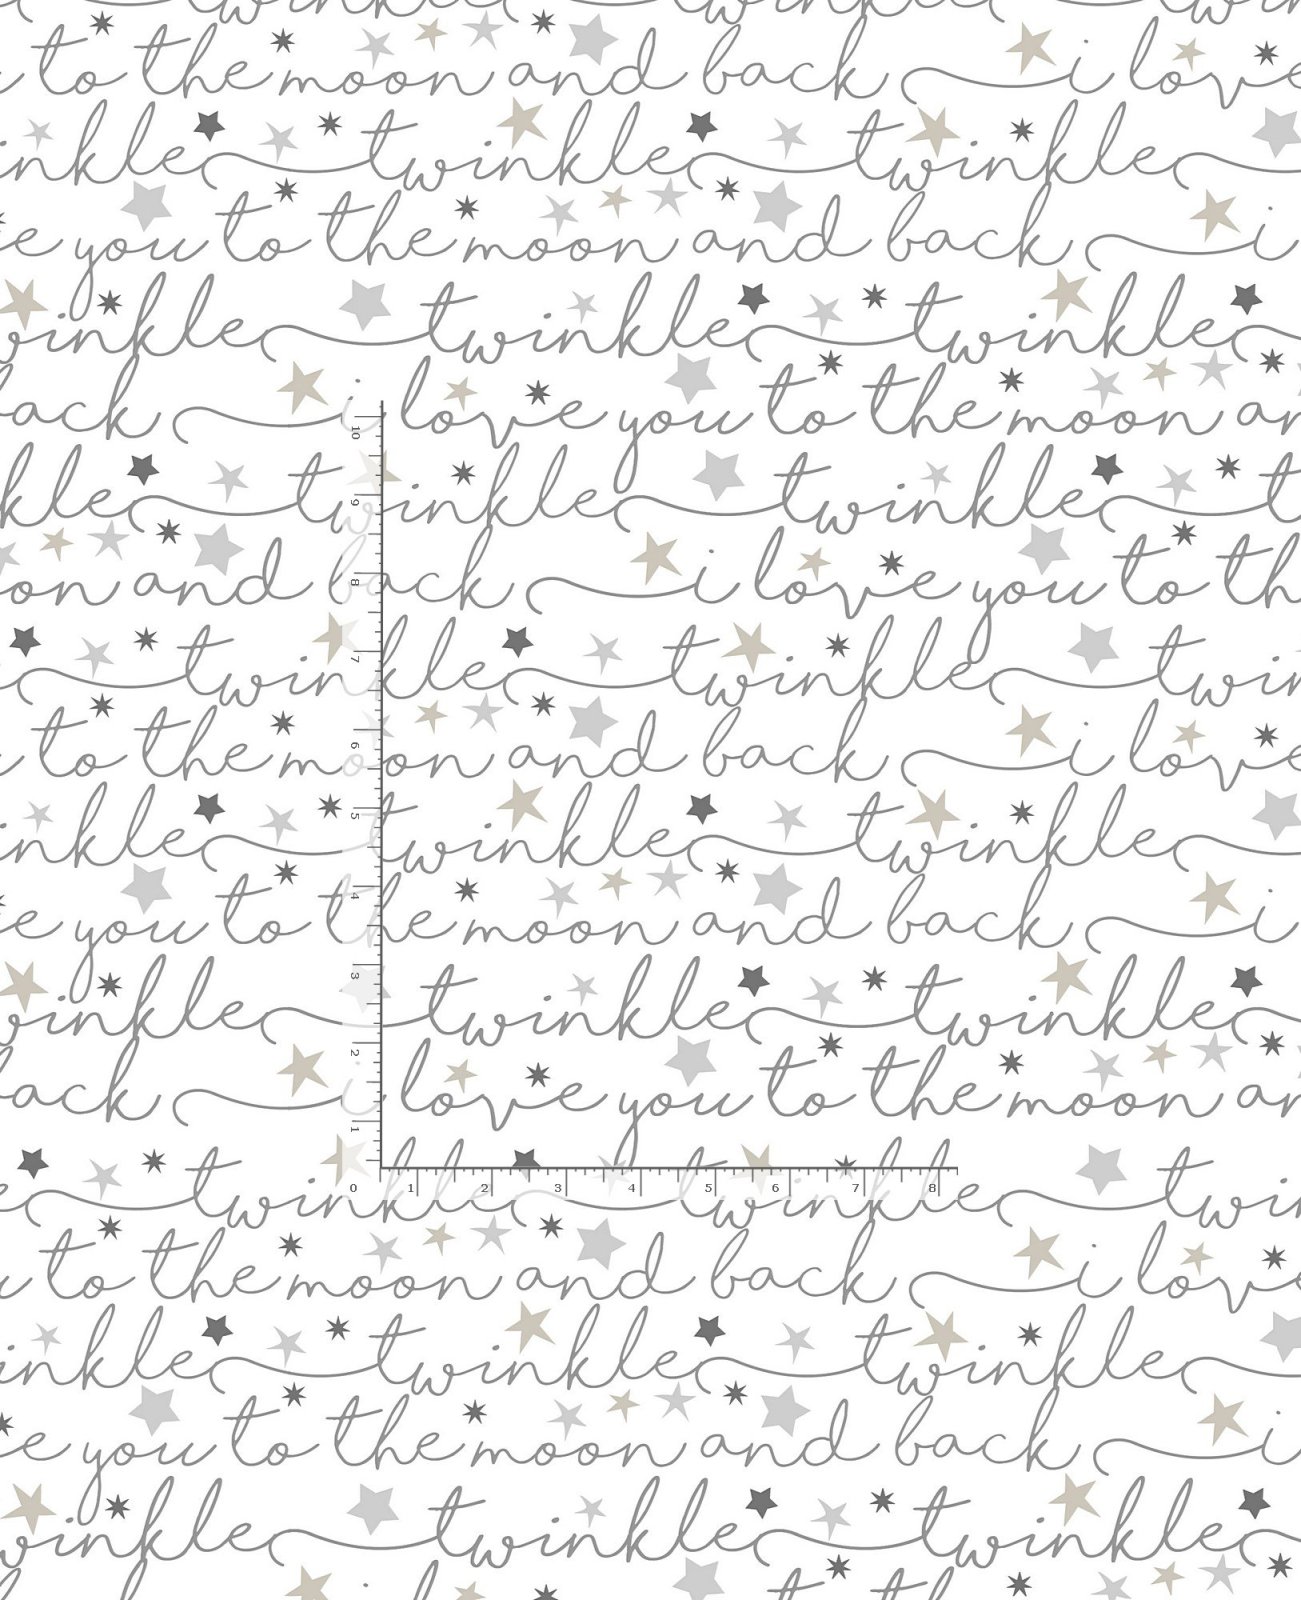 to the moon and back i love
twinkle twinkle
you to the moon and back i
twinkle twinkle
back i love you to the moon
twinkle twinkle
and back i love you to
twinkle twinkle
to the moon and back i love
twinkle twinkle
you to the moon and back i
twinkle twinkle
back i love you to the moon
twinkle twinkle
to the moon and back i love
twinkle twinkle
you to the moon and back i
twinkle twinkle
10
9
8
7
6
5
4
3
2
1
0 1 2 3 4 5 6 7 8